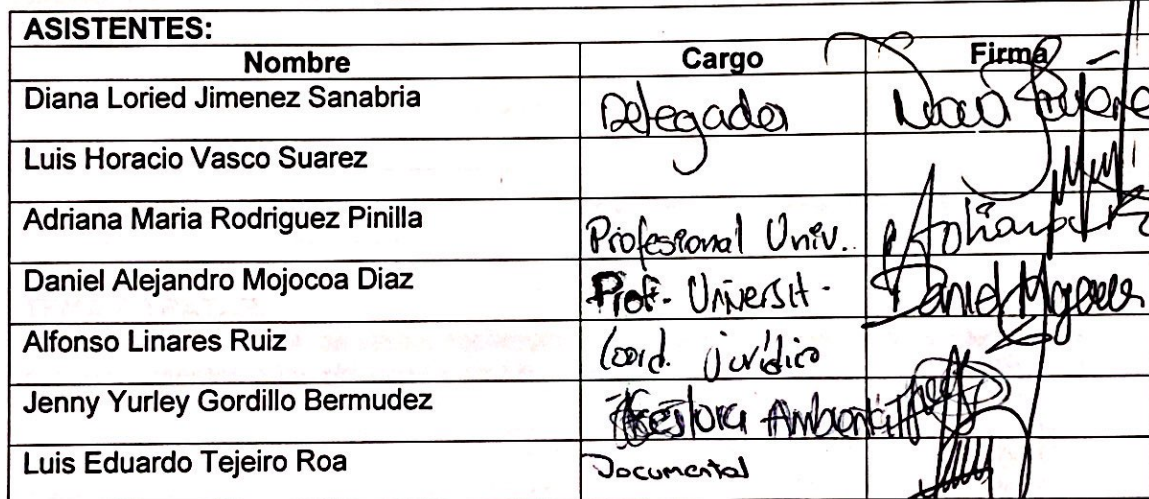 ASISTENTES:
Nombre Cargo Firma
Diana Loried Jimenez Sanabria Delegada
Luis Horacio Vasco Suarez
Adriana Maria Rodriguez Pinilla Profesional Univ. Adriana
Daniel Alejandro Mojocoa Diaz Prof. Universit. Daniel Mojocoa
Alfonso Linares Ruiz Coord. jurídico
Jenny Yurley Gordillo Bermudez Gestora Ambiental
Luis Eduardo Tejeiro Roa Documental